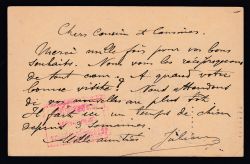 Chers Cousin et Cousines.
Merci mille fois pour vos bons
souhaits. Nous vous les réciproquons
de tout cœur. A quand votre
bonne visite? Nous attendons
de vos nouvelles au plus tôt.
Il fait ici un temps de chien
depuis 3 semaines.
Mille amitiés Juliana